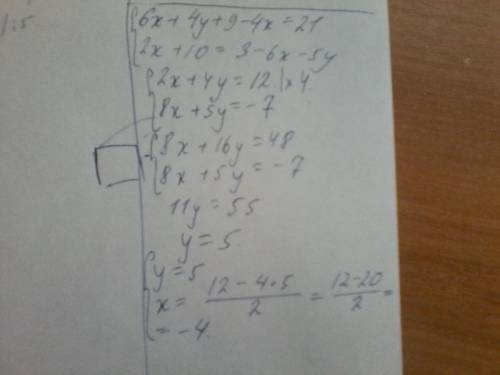 1):5
{6x+4y+9-4x=21
{2x+10=3-6x-5y
{2x+4y=12 |×4
{8x+5y=-7
{8x+16y=48
{8x+5y=-7
11y=55
y=5.
{y=5
{x= (12-4·5)/2 = (12-20)/2 =
=-4.